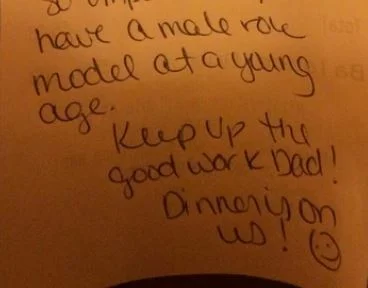 have a male role
model at a young
age.
Keep up the
good work Dad!
Dinner is on
us! ☺